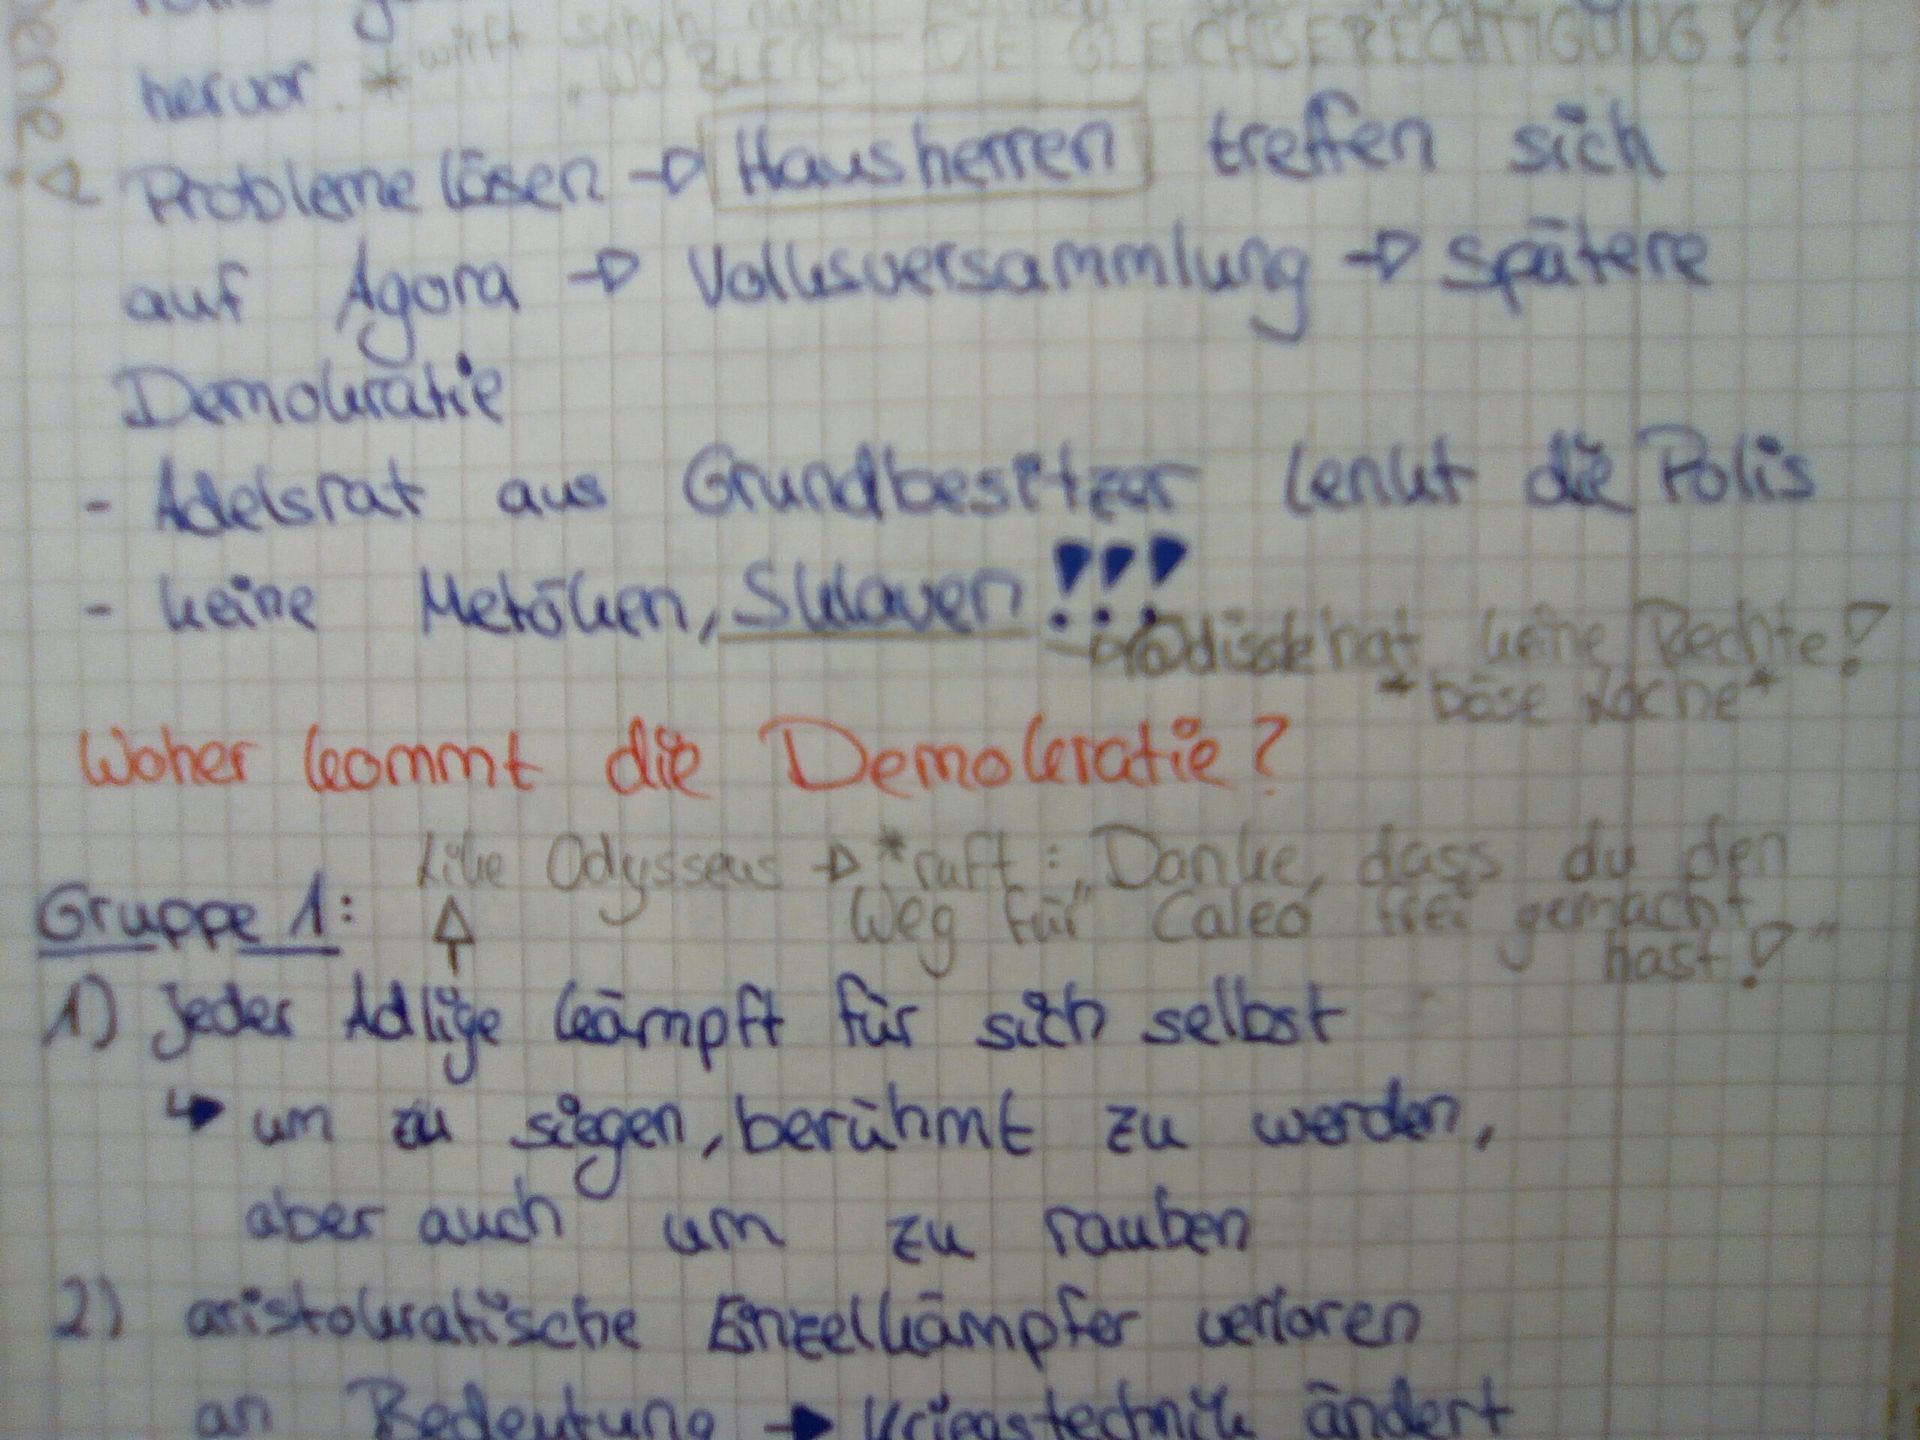 hervor. *wirft schuh nach
"WO BLEIBT DIE GLEICHBERECHTIGUNG!?"
Probleme lösen → Hausherren treffen sich
auf Agora → Volksversammlung → spätere
Demokratie
- Adelsrat aus Grundbesitzer lenkt die Polis
- keine Metöken, Sklaven!!!
hat keine Rechte!
*böse Lache*
Woher kommt die Demokratie?
Like Odysseus → *ruft: „Danke, dass du den
Weg für "Caleo" frei gemacht
hast!"
Gruppe 1:
1) jeder Adlige kämpft für sich selbst
↳ um zu siegen, berühmt zu werden,
aber auch um zu rauben
2) aristokratische Einzelkämpfer verloren
an Bedeutung → Kriegstechnik ändert